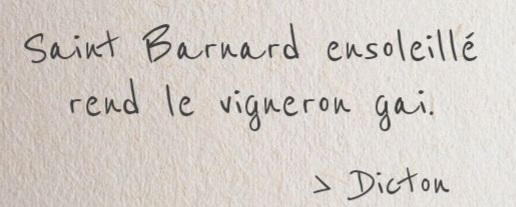 Saint Barnard ensoleillé
rend le vigneron gai.
> Dicton